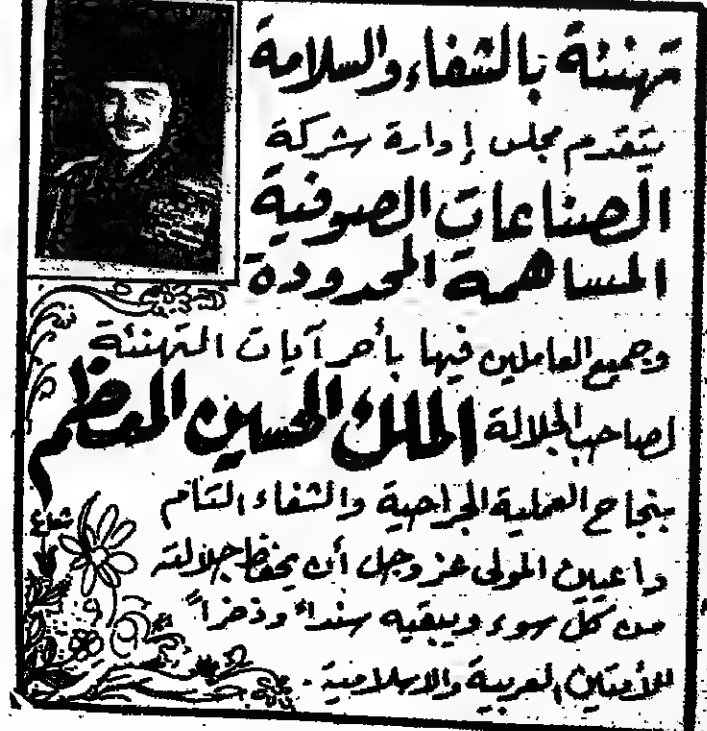 تهنئة بالشفاء والسلامة
يتقدم مجلس إدارة شركة
الصناعات الصوفية
المساهمة المحدودة
وجميع العاملين فيها بأحر آيات التهنئة
لصاحب الجلالة الملك الحسين المعظم
بنجاح العملية الجراحية والشفاء التام
داعين المولى عز وجل أن يحفظ جلالته
من كل سوء ويبقيه سنداً وذخراً
للأمتين العربية والاسلامية .
شعاع